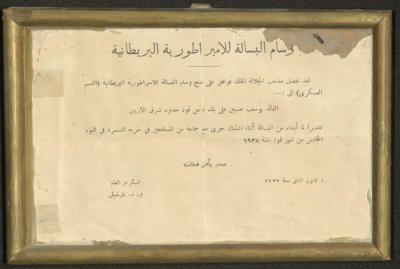 وسام البسالة للامبراطورية البريطانية
لقد تفضل صاحب الجلالة الملك فوافق على منح وسام البسالة للامبراطورية البريطانية (القسم
العسكري) الى :—
القائد يوسف حسين علي بك ، من قوة حدود شرق الاردن
تقديرا لما أبداه من البسالة أثناء اشتباك جرى مع جماعة من المسلحين في خربة السمرة في اليوم
الخامس من شهر تموز سنة ١٩٣٨
صدر بأمر فخامته
السكرتير العام
و. د. باترشيل
كانون الثاني سنة ١٩٣٩